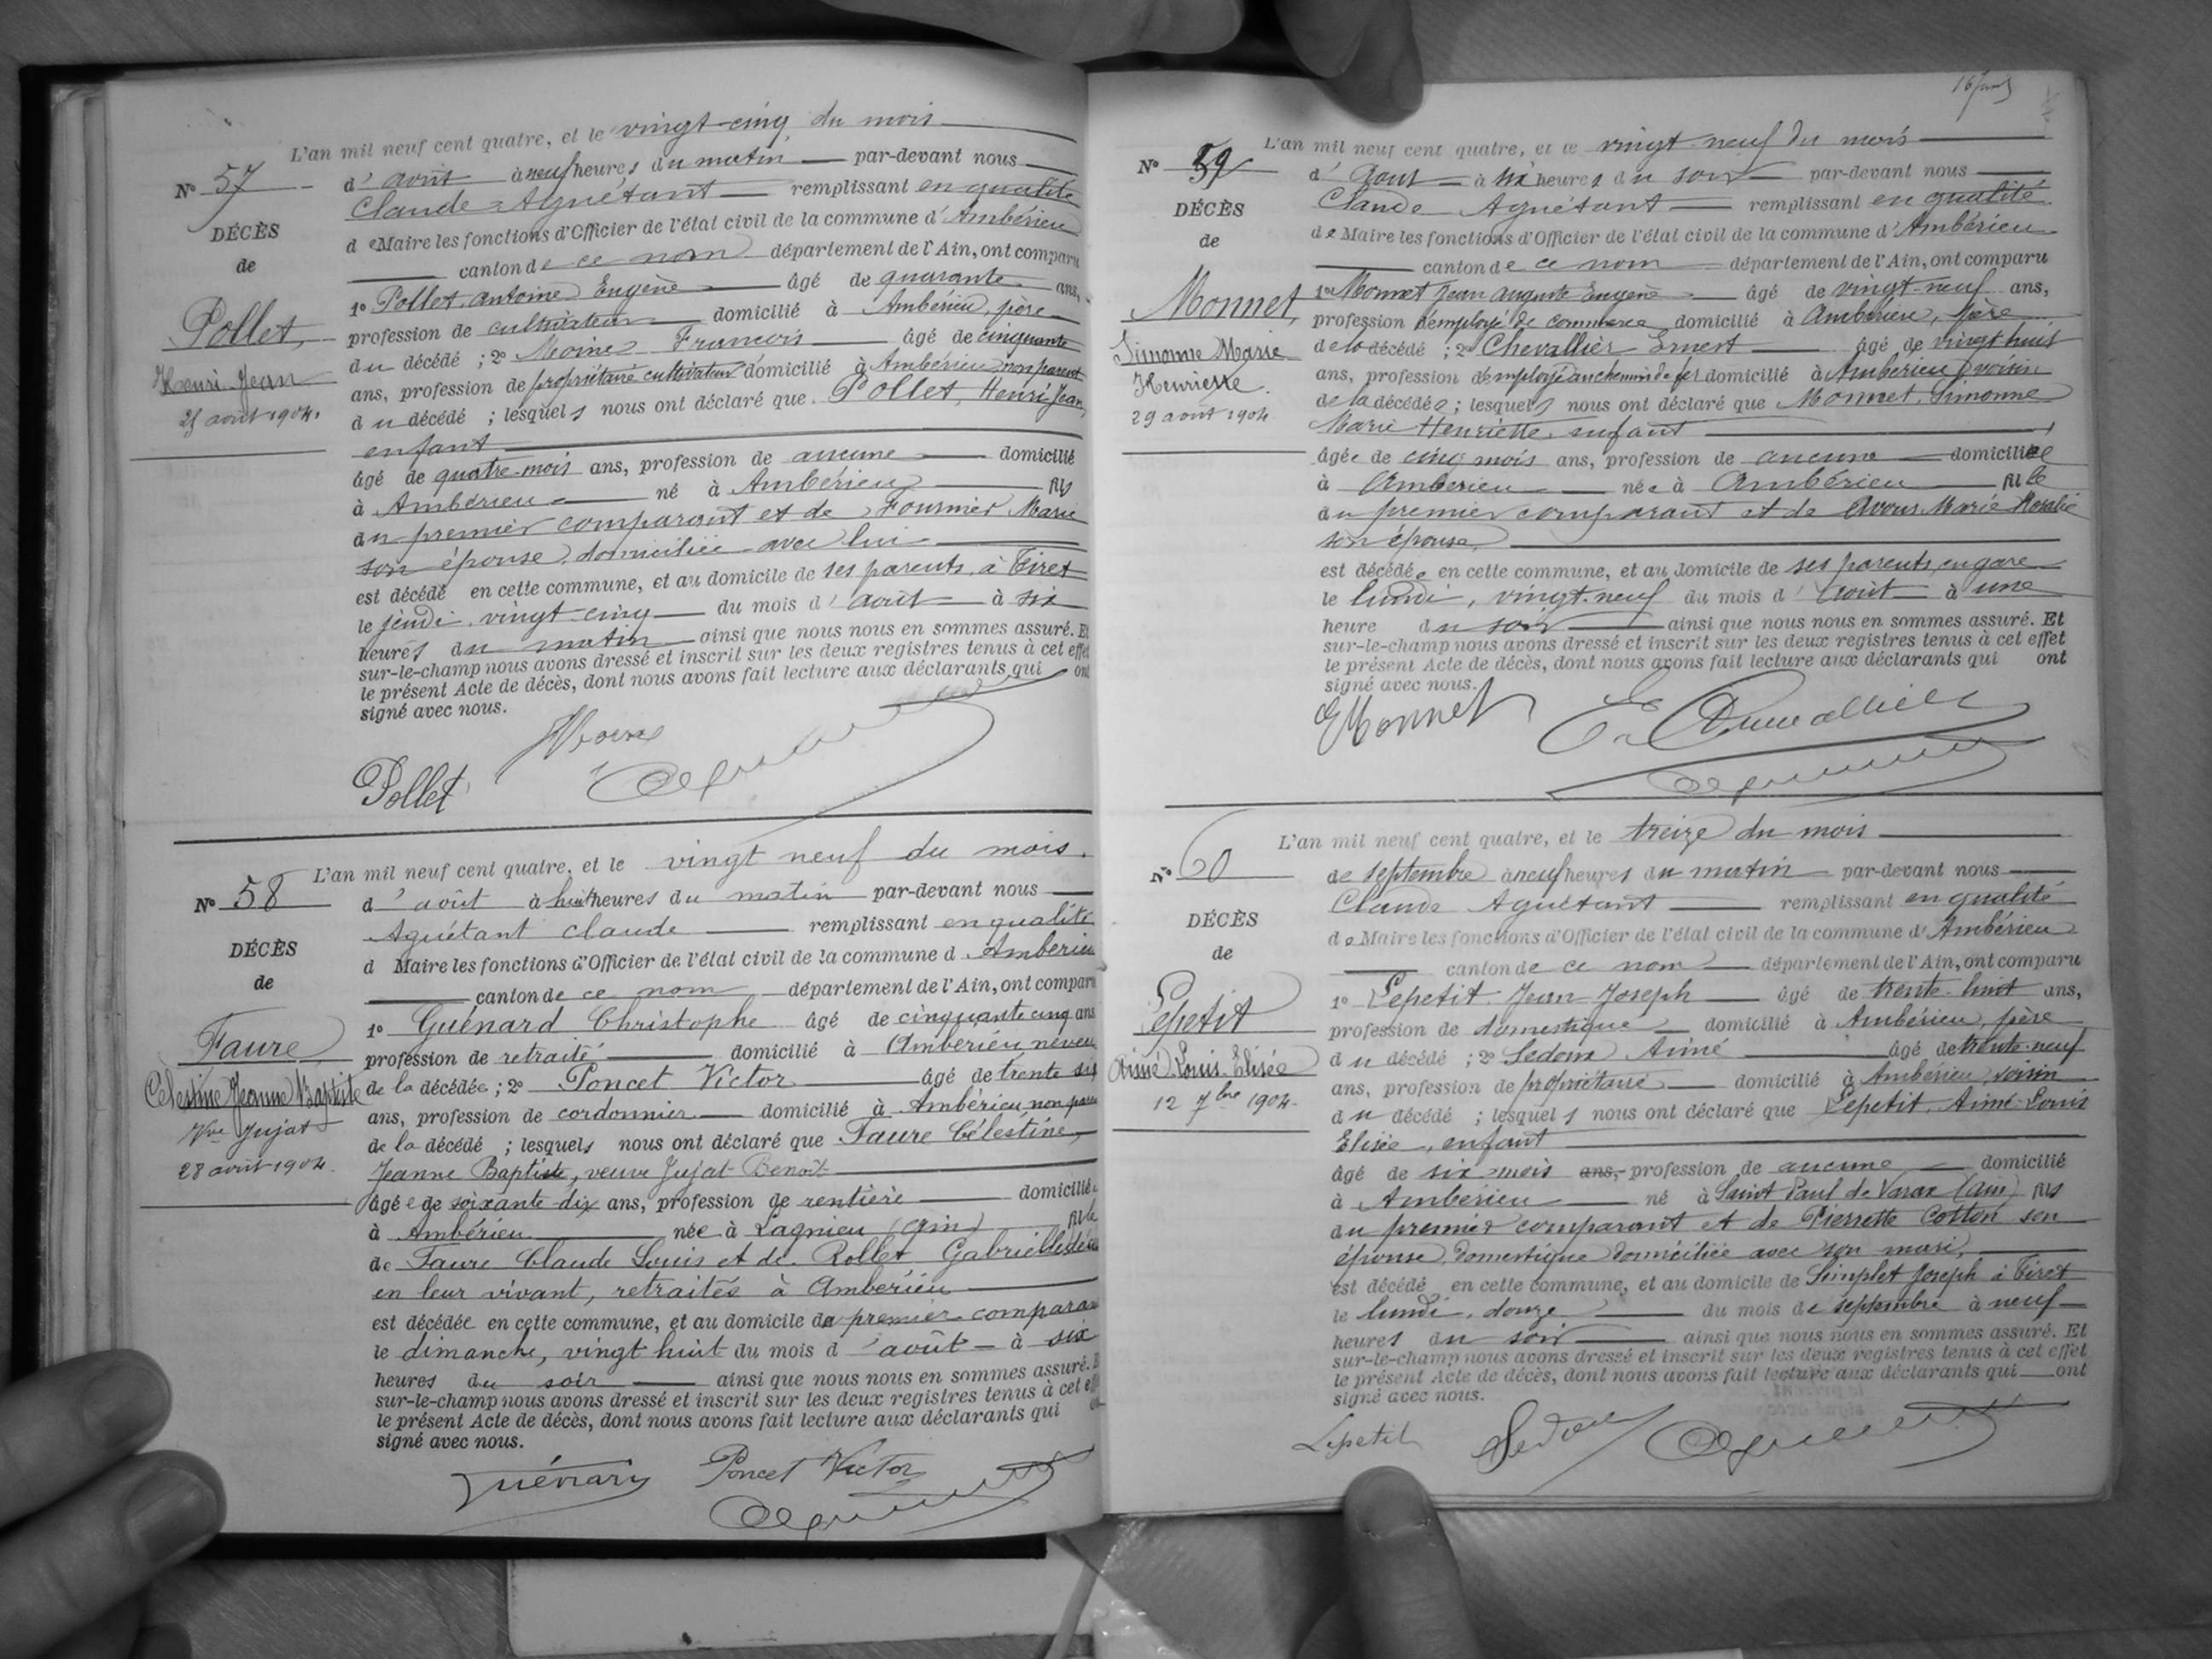 L'an mil neuf cent quatre, et le vingt-cinq du mois
N° 57
d' août à neuf heures du matin par-devant nous
Claude Aguétant remplissant en qualité
DÉCÈS
de Maire les fonctions d'Officier de l'état civil de la commune d' Ambérieu
de
canton de ce nom département de l'Ain, ont comparu
1° Pollet, Antoine Eugène âgé de quarante ans,
Pollet,
profession de cultivateur domicilié à Ambérieu, père
du décédé ; 2° Moine François âgé de cinquante
Henri Jean
ans, profession de propriétaire cultivateur domicilié à Ambérieu non parent
25 août 1904.
du décédé ; lesquels nous ont déclaré que Pollet, Henri Jean,
enfant
âgé de quatre mois ans, profession de aucune domicilié
à Ambérieu né à Ambérieu fils
du premier comparant et de Fournier Marie
son épouse, domiciliée avec lui
est décédé en cette commune, et au domicile de ses parents, à Tiret
le jeudi, vingt-cinq du mois d' août à six
heures du matin ainsi que nous nous en sommes assuré. Et
sur-le-champ nous avons dressé et inscrit sur les deux registres tenus à cet effet
le présent Acte de décès, dont nous avons fait lecture aux déclarants qui ont
signé avec nous.
Moine
Pollet
L'an mil neuf cent quatre, et le vingt neuf du mois
N° 58
d' août à huit heures du matin par-devant nous
Aguétant Claude remplissant en qualité
DÉCÈS
d Maire les fonctions d'Officier de l'état civil de la commune d Ambérieu
de
canton de ce nom département de l'Ain, ont comparu
1° Guénard Christophe âgé de cinquante cinq ans
Faure
profession de retraité domicilié à Ambérieu, neveu
Célestine Jeanne Baptiste
de la décédée ; 2° Poncet Victor âgé de trente six
ans, profession de cordonnier domicilié à Ambérieu, non parent
Vve Jujat
de la décédé ; lesquels nous ont déclaré que Faure Célestine,
28 août 1904.
Jeanne Baptiste, veuve Jujat Benoît
âgée de soixante-dix ans, profession de rentière domiciliée
à Ambérieu née à Lagnieu (Ain) fille
de Faure Claude Louis et de Rollet Gabrielle
en leur vivant, retraités à Ambérieu
est décédée en cette commune, et au domicile du premier comparant
le dimanche, vingt huit du mois d' août à six
heures du soir ainsi que nous nous en sommes assuré. Et
sur-le-champ nous avons dressé et inscrit sur les deux registres tenus à cet effet
le présent Acte de décès, dont nous avons fait lecture aux déclarants qui
signé avec nous.
Guénard Poncet Victor
L'an mil neuf cent quatre, et le vingt-neuf du mois
N° 59
d' Août à six heures du soir par-devant nous
DÉCÈS
Claude Aguétant remplissant en qualité
de
de Maire les fonctions d'Officier de l'état civil de la commune d' Ambérieu
canton de ce nom département de l'Ain, ont comparu
Monnet,
1° Monnet Jean Auguste Eugène âgé de vingt-neuf ans,
profession d'employé de commerce domicilié à Ambérieu, père
Simonne Marie
de la décédé ; 2° Chevallier Ernest âgé de vingt huit
Henriette.
ans, profession d'employé au chemin de fer domicilié à Ambérieu voisin
29 août 1904
de la décédée ; lesquels nous ont déclaré que Monnet, Simonne
Marie Henriette, enfant
âgée de cinq mois ans, profession de aucune domiciliée
à Ambérieu née à Ambérieu fille
du premier comparant et de Marie
son épouse,
est décédée en cette commune, et au domicile de ses parents, en gare
le lundi, vingt-neuf du mois d' août à une
heure du soir ainsi que nous nous en sommes assuré. Et
sur-le-champ nous avons dressé et inscrit sur les deux registres tenus à cet effet
le présent Acte de décès, dont nous avons fait lecture aux déclarants qui ont
signé avec nous.
EMonnet E. Chevallier
L'an mil neuf cent quatre, et le treize du mois
N° 60
de septembre à neuf heures du matin par-devant nous
Claude Aguétant remplissant en qualité
DÉCÈS
de Maire les fonctions d'Officier de l'état civil de la commune d' Ambérieu
de
canton de ce nom département de l'Ain, ont comparu
1° Lepetit Jean Joseph âgé de trente-huit ans,
Lepetit
profession de domestique domicilié à Ambérieu, père
Aimé Louis Elisée
du décédé ; 2° Aimé âgé de trente-neuf
ans, profession de propriétaire domicilié à Ambérieu, voisin
12 7bre 1904.
du décédé ; lesquels nous ont déclaré que Lepetit, Aimé Louis
Elisée, enfant
âgé de six mois ans, profession de aucune domicilié
à Ambérieu né à Saint Paul de Varax (Ain) fils
du premier comparant et de Pierrette Cotton son
épouse, domestique domiciliée avec son mari,
est décédé en cette commune, et au domicile de Simplet Joseph à Tiret
le lundi, douze du mois de septembre à neuf
heures du soir ainsi que nous nous en sommes assuré. Et
sur-le-champ nous avons dressé et inscrit sur les deux registres tenus à cet effet
le présent Acte de décès, dont nous avons fait lecture aux déclarants qui ont
signé avec nous.
Lepetit